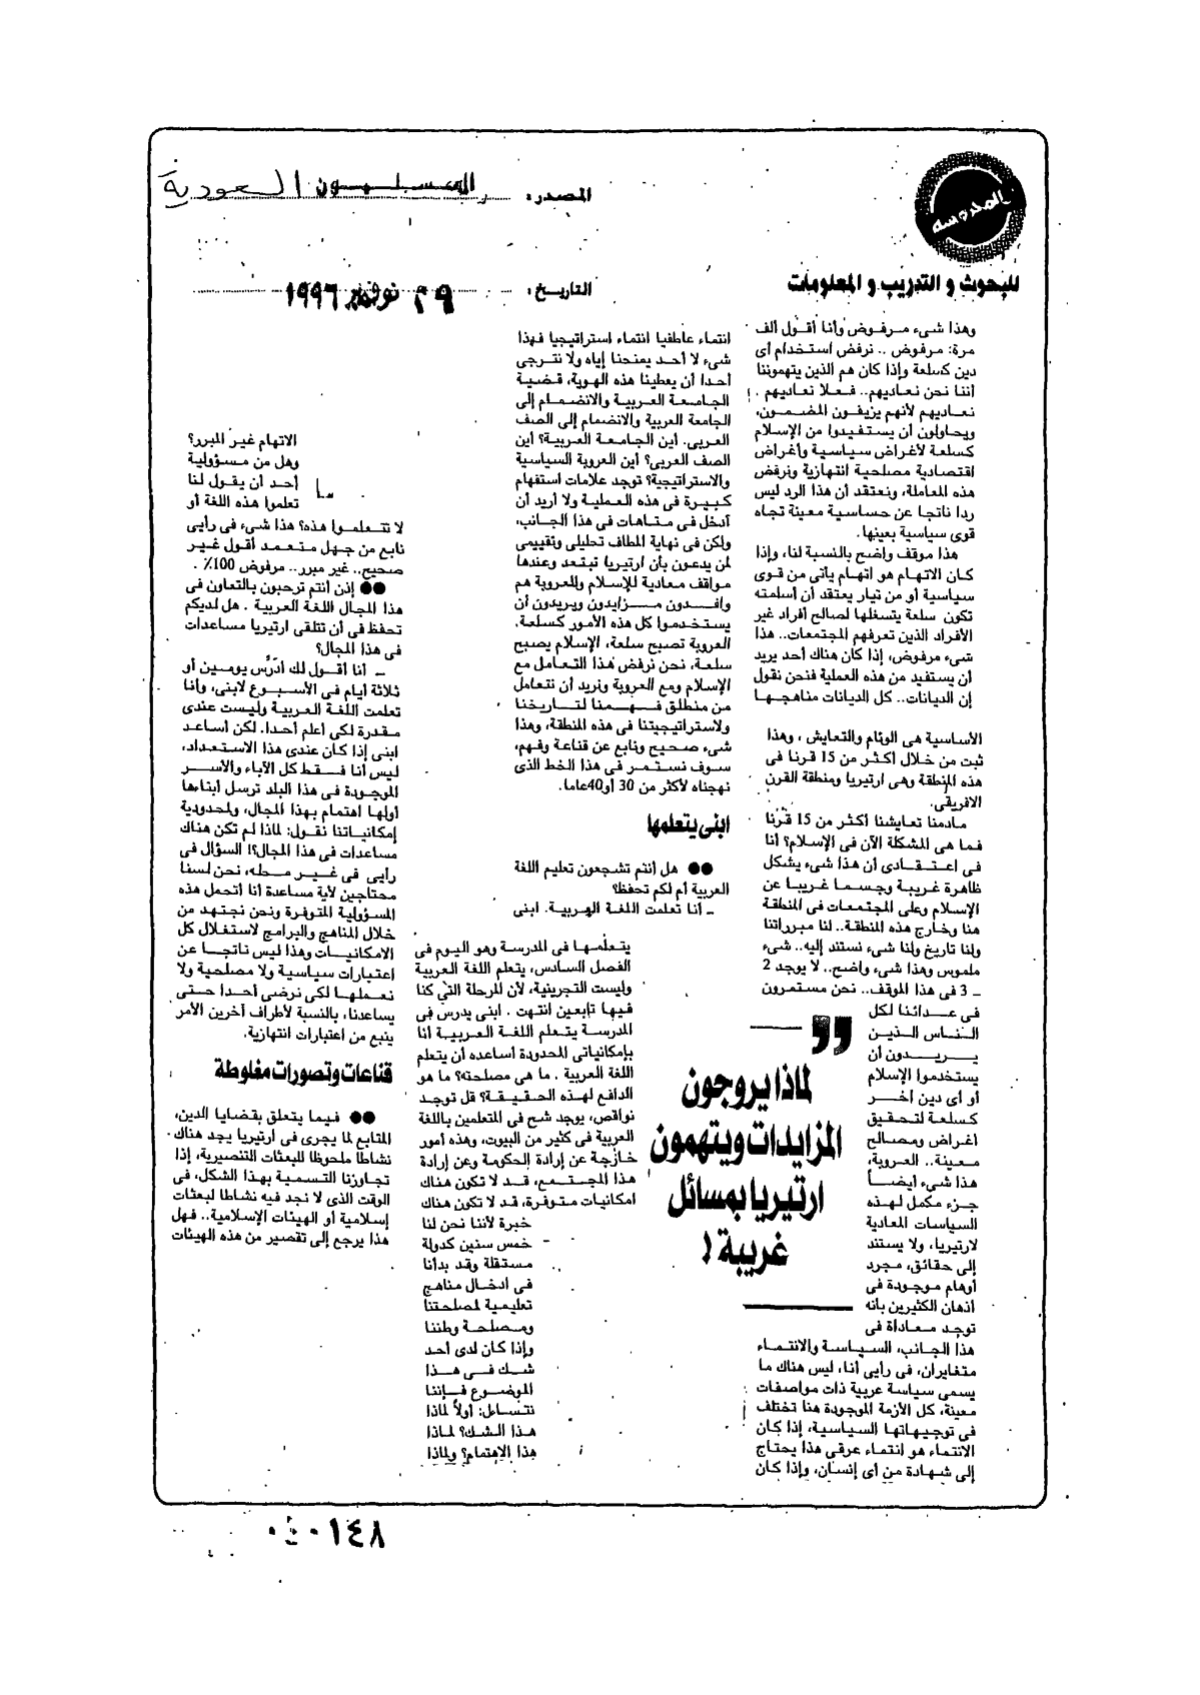 المحروسة
للبحوث و التدريب و المعلومات
المصدر: المسلمون السعودية
التاريخ: ٢٩ نوفمبر ١٩٩٦
وهذا شىء مرفوض وأنا أقول ألف
مرة: مرفوض .. نرفض استخدام أى
دين كسلعة وإذا كان هم الذين يتهموننا
أننا نحن نعاديهم.. فعلا نعاديهم .
نعاديهم لأنهم يزيفون المضمون،
ويحاولون أن يستفيدوا من الإسلام
كسلعة لأغراض سياسية وأغراض
اقتصادية مصلحية انتهازية ونرفض
هذه المعاملة، ونعتقد أن هذا الرد ليس
ردا ناتجا عن حساسية معينة تجاه
قوى سياسية بعينها.
هذا موقف واضح بالنسبة لنا، وإذا
كان الاتهام هو اتهام يأتى من قوى
سياسية أو من تيار يعتقد أن أسلمته
تكون سلعة يتسغلها لصالح أفراد غير
الأفراد الذين تعرفهم المجتمعات.. هذا
شىء مرفوض، إذا كان هناك أحد يريد
أن يستفيد من هذه العملية فنحن نقول
إن الديانات.. كل الديانات مناهجها
الأساسية هى الوئام والتعايش ، وهذا
ثبت من خلال أكثر من 15 قرنا فى
هذه المنطقة وهى ارتيريا ومنطقة القرن
الافريقى.
مادمنا تعايشنا أكثر من 15 قرنا
فما هى المشكلة الآن فى الإسلام؟ أنا
فى اعتقادى أن هذا شىء يشكل
ظاهرة غريبة وجسما غريبا عن
الإسلام وعلى المجتمعات فى المنطقة
هنا وخارج هذه المنطقة.. لنا مبرراتنا
ولنا تاريخ ولنا شىء نستند إليه.. شىء
ملموس وهذا شىء واضح.. لا يوجد 2
ـ 3 فى هذا الموقف.. نحن مستمرون
فى عدائنا لكل
الناس الذين
يريدون أن
يستخدموا الإسلام
أو أى دين آخر
كسلعة لتحقيق
أغراض ومصالح
معينة.. العروبة،
هذا شىء ايضاً
جزء مكمل لهذه
السياسات المعادية
لارتيريا، ولا يستند
إلى حقائق، مجرد
أوهام موجودة فى
أذهان الكثيرين بأنه
توجد معاداة فى
هذا الجانب، السياسة والانتماء
متغايران، فى رأيى أنا، ليس هناك ما
يسمى سياسة عربية ذات مواصفات
معينة، كل الأزمة الموجودة هنا تختلف
فى توجيهاتها السياسية، إذا كان
الانتماء هو انتماء عرقى هذا يحتاج
إلى شهادة من أى إنسان، وإذا كان
لماذا يروجون
المزايدات ويتهمون
ارتيريا بمسائل
غريبة !
انتماء عاطفيا انتماء استراتيجيا فهذا
شىء لا أحد يمنحنا إياه ولا نترجى
أحدا أن يعطينا هذه الهوية، قضية
الجامعة العربية والانضمام إلى
الجامعة العربية والانضمام إلى الصف
العربى. أين الجامعة العربية؟ أين
الصف العربى؟ أين العروبة السياسية
والاستراتيجية؟ توجد علامات استفهام
كبيرة فى هذه العملية ولا أريد أن
أدخل فى متاهات فى هذا الجانب،
ولكن فى نهاية المطاف تحليلى وتقييمى
لمن يدعون بأن ارتيريا تبتعد وعندها
مواقف معادية للإسلام وللعروبة هم
وافدون مزايدون ويريدون أن
يستخدموا كل هذه الأمور كسلعة.
العروبة تصبح سلعة، الإسلام يصبح
سلعة، نحن نرفض هذا التعامل مع
الإسلام ومع العروبة ونريد أن نتعامل
من منطلق فهمنا لتاريخنا
ولاستراتيجيتنا فى هذه المنطقة، وهذا
شىء صحيح ونابع عن قناعة وفهم،
سوف نستمر فى هذا الخط الذى
نهجناه لأكثر من 30 أو40عاما.
ابنى يتعلمها
●● هل أنتم تشجعون تعليم اللغة
العربية أم لكم تحفظ؟
ـ أنا تعلمت اللغة العربية. ابنى
يتعلمها فى المدرسة وهو اليوم فى
الفصل السادس، يتعلم اللغة العربية
وليست التجرينية، لأن المرحلة التى كنا
فيها تابعين انتهت . ابنى يدرس فى
المدرسة يتعلم اللغة العربية أنا
بإمكانياتى المحدودة أساعده أن يتعلم
اللغة العربية . ما هى مصلحته؟ ما هو
الدافع لهذه الحقيقة؟ قل توجد
نواقص، يوجد شح فى المتعلمين باللغة
العربية فى كثير من البيوت، وهذه أمور
خارجة عن إرادة الحكومة وعن إرادة
هذا المجتمع، قد لا تكون هناك
امكانيات متوفرة، قد لا تكون هناك
خبرة لأننا نحن لنا
خمس سنين كدولة
مستقلة وقد بدأنا
فى ادخال مناهج
تعليمية لمصلحتنا
ومصلحة وطننا
وإذا كان لدى أحد
شك فى هذا
الموضوع فإننا
نتساءل: أولاً لماذا
هذا الشك؟ لماذا
هذا الاهتمام؟ ولماذا
الاتهام غير المبرر؟
وهل من مسؤولية
أحد أن يقول لنا
تعلموا هذه اللغة أو
لا تتعلموا هذه؟ هذا شىء فى رأيى
نابع من جهل متعمد أقول غير
صحيح.. غير مبرر.. مرفوض 100٪ .
●● إذن أنتم ترحبون بالتعاون فى
هذا المجال اللغة العربية . هل لديكم
تحفظ فى أن تتلقى ارتيريا مساعدات
فى هذا المجال؟
ـ أنا أقول لك ادَرَّس يومين أو
ثلاثة أيام فى الأسبوع لابنى، وأنا
تعلمت اللغة العربية وليست عندى
مقدرة لكى أعلم أحدا. لكن أساعد
ابنى إذا كان عندى هذا الاستعداد،
ليس أنا فقط كل الآباء والأسر
الموجودة فى هذا البلد ترسل أبناءها
أولها اهتمام بهذا المجال، ولمحدودية
إمكانياتنا نقول: لماذا لم تكن هناك
مساعدات فى هذا المجال؟! السؤال فى
رايى فى غير محله، نحن لسنا
محتاجين لأية مساعدة أنا أتحمل هذه
المسؤولية المتوفرة ونحن نجتهد من
خلال المناهج والبرامج لاستغلال كل
الامكانيات وهذا ليس ناتجا عن
اعتبارات سياسية ولا مصلحية ولا
نعملها لكى نرضى أحدا حتى
يساعدنا، بالنسبة لأطراف أخرين الأمر
ينبع من اعتبارات انتهازية.
قناعات وتصورات مغلوطة
●● فيما يتعلق بقضايا الدين،
المتابع لما يجرى فى ارتيريا يجد هناك
نشاطا ملحوظا للبعثات التنصيرية، إذا
تجاوزنا التسمية بهذا الشكل، فى
الوقت الذى لا نجد فيه نشاطا لبعثات
إسلامية أو الهيئات الإسلامية.. فهل
هذا يرجع إلى تقصير من هذه الهيئات
٠٤٠١٤٨